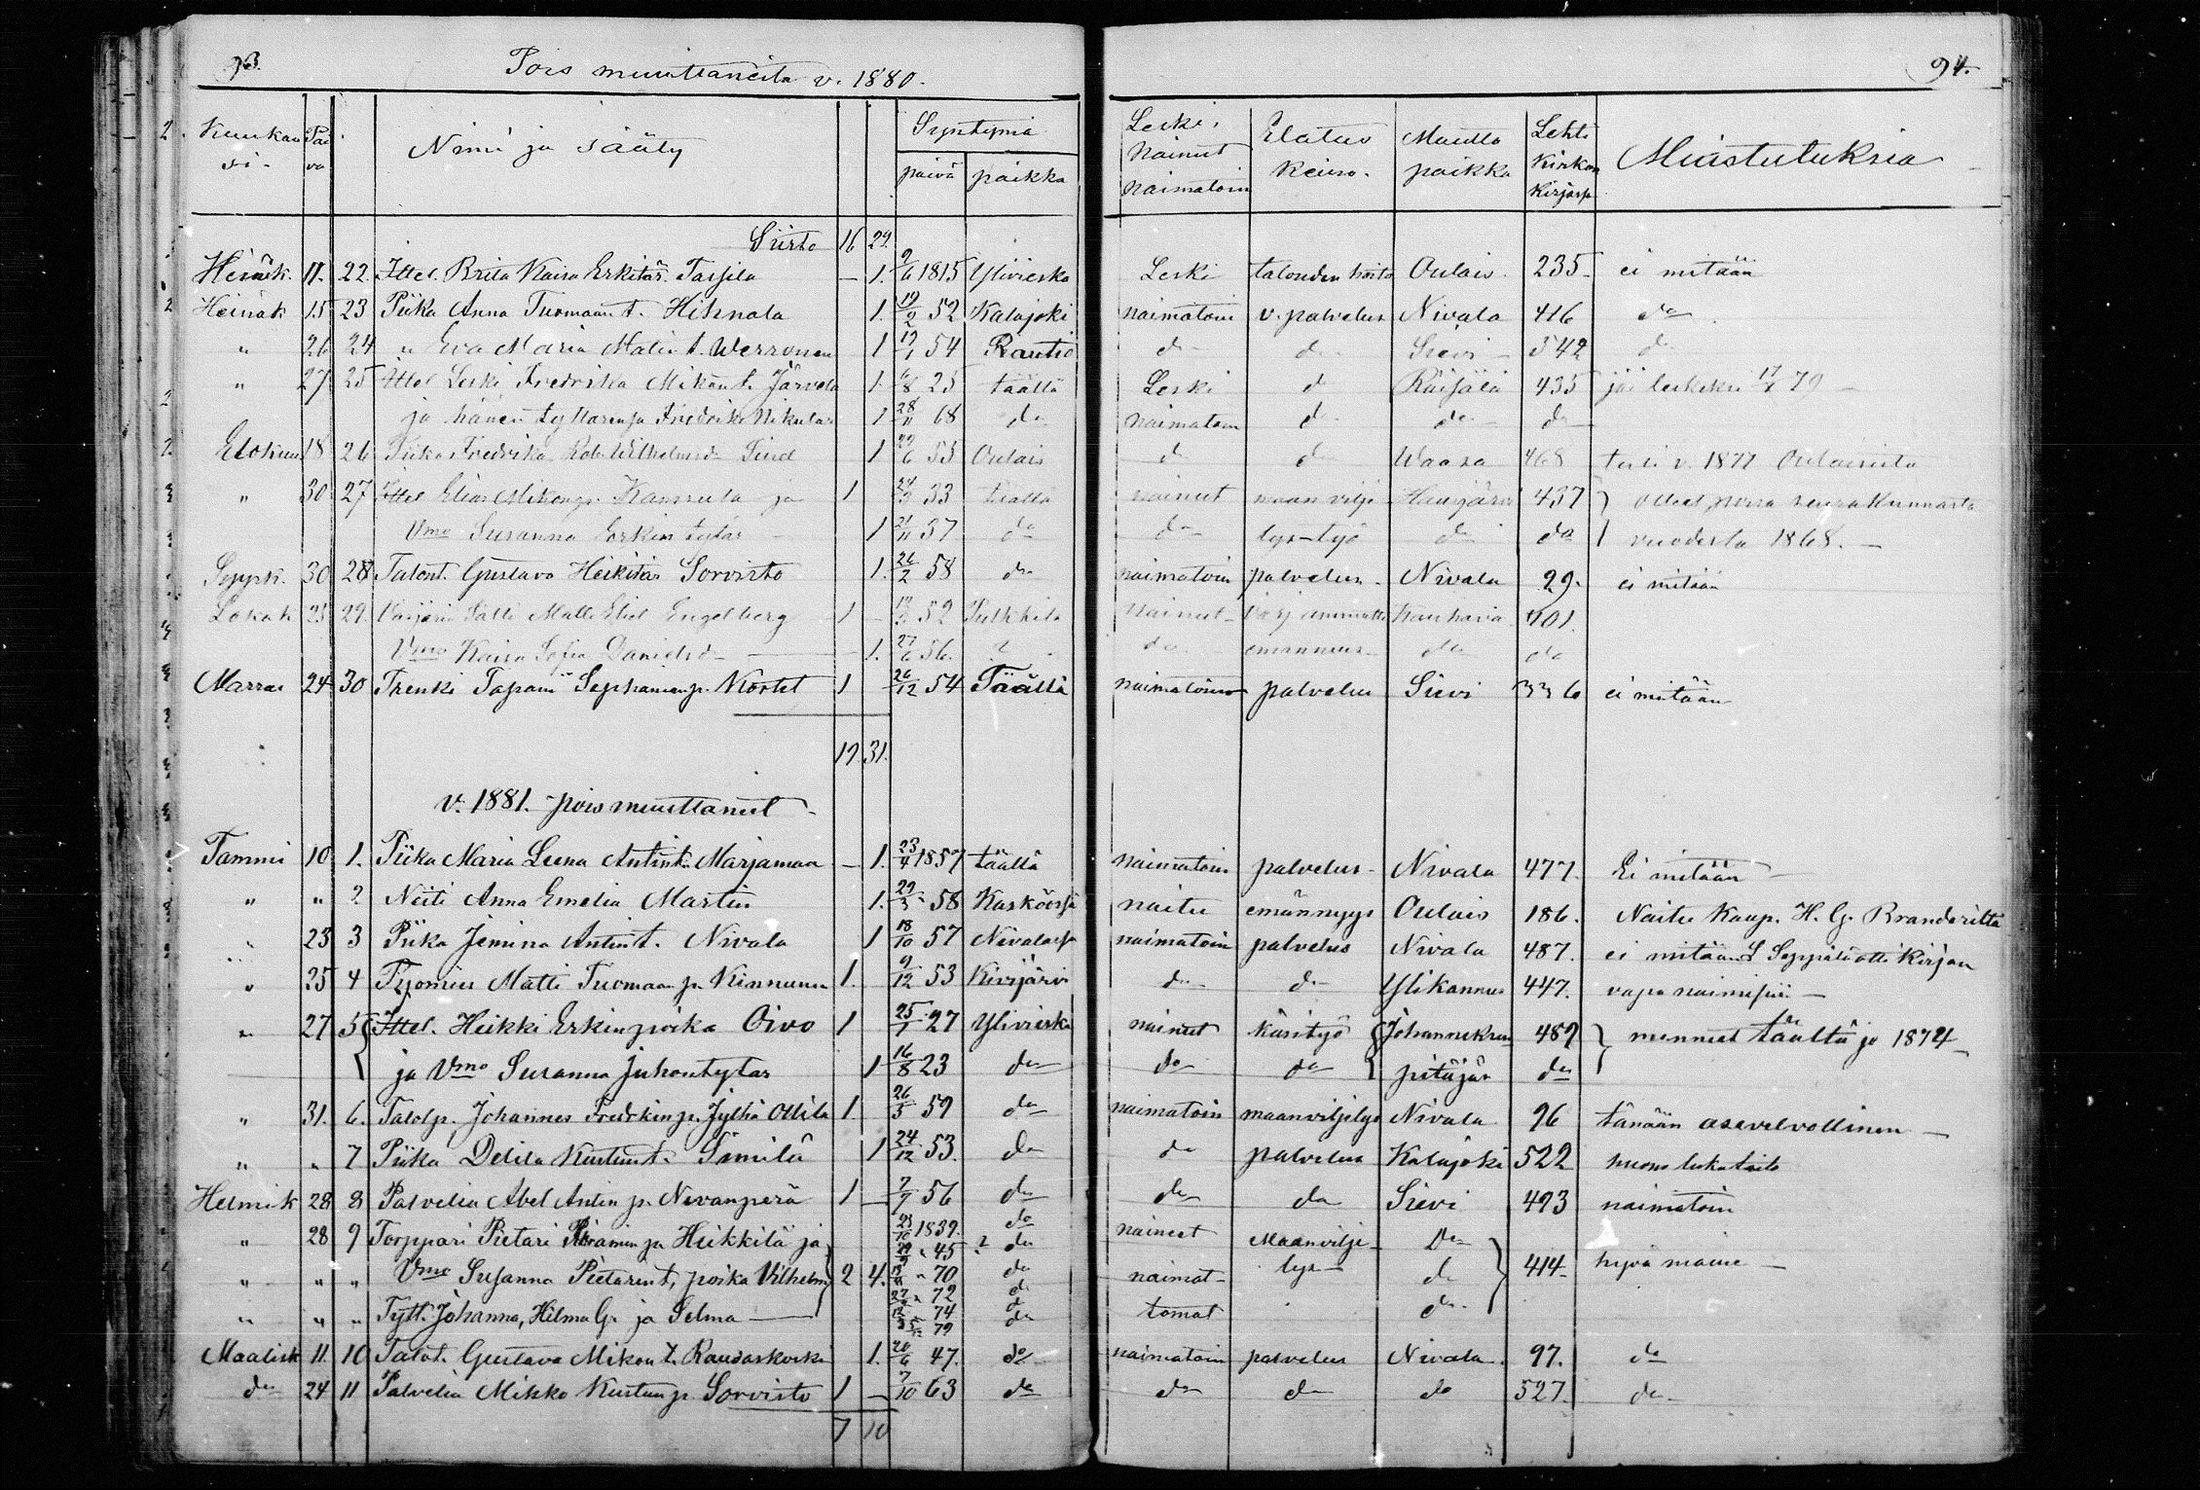 93.
Pois muuttaneita v. 1880.
94.
Kuukausi- Päivä Nimi ja sääty Syntymä päivä paikka Leski, Nainut naimatoin Elatus keino. Muutto paikka Lehti kirkon kirjassa Muistutuksia
Siirto 16 29.
Heinäk. 11. 22. Ittel. Brita Kaisa Erkitär. Tassila — 1. 9/6 1815 Ylivieska Leski talouden hoito Oulais. 235. ei mitään
Heinäk 15 23 Piika Anna Tuomaan t. Hihnala 1. 19/2 52 Kalajoki naimatoin v. palvelus Nivala 416 do
" 26 24 " Eva Maria Matin t. Werronen 1 54 Rautio do do Sievi 342 do
" 27 25 Ittel Leski Fredrika Mikon t. Järvelä 1. 6/8 25 täällä Leski d Räisälä 435 jäi leskeksi 79
ja hänen tyttärensä Fredrika Nikulas 1 28/11 68 do naimatoin d do do
Elokuu 18 26 Piika Fredrika Wilhelmsd. Lind 1 29/6 53 Oulais d d Waasa 468 tuli v. 1877 Oulaisista
" 30 27 Ittel Elias Mikonp. Kannula ja 1 33 täällä nainut maan vilje Haapajärvi 437 } olleet poissa seurakunnasta
Vmo Susanna Erkin tytär 1 21/11 37 do do lys-työ do do } vuodesta 1868. —
Syysk. 30 28 Talont. Gustava Heikitär Sorvisto 1. 26/2 58 do naimatoin palvelus Nivala 29. ei mitään
Lokak 25 29. Värjäri Matts Eliel Engelberg 1 52 Pulkkila nainut Kauhava 401.
Vmo Kaisa Sofia Danielsd. 1. 27/6 56. do emännyys do do
Marras 24 30 Trenki Tapani Sephaninp. Kortet 1 26/12 54 Täällä naimatoin palvelus Sievi 336 ei mitään
19 31.
v. 1881. pois muuttanut
Tammi 10 1. Piika Maria Leena Antint. Marjamaa — 1. 23/4 1857 täällä naimatoin palvelus Nivala 477. Ei mitään
" " 2 Neiti Anna Emelia Martin 1. 29/3 58 Kasköössä naitu emännyys Oulais 186. Naitu Kaup. H. G. Branderilta
" 23 3 Piika Jemina Antint. Nivala 1 18/10 57 Nivalassa naimatoin palvelus Nivala 487. ei mitään L Seppälä otti kirjan
" 25 4 Tyomies Matti Tuomaan p. Kinnunen 1. 9/12 53 Kivijärvi do do Ylikannus 447. vapa naimisiin —
" 27 5 { Ittel. Heikki Erkinpoika Oivo 1 25/1 27 Ylivieska nainut käsityö { Johanneksen 489 } menneet täältä jo 1874
ja Vmo Susanna Juhontytar 1 16/8 23 do do do } pitäjän do }
" 31. 6. Talolp. Johannes Fredrikinp. Jylhä Ollila 1. 26/5 59 do naimatoin maanviljelys Nivala 96 tänään asevelvollinen —
" " 7 Piika Delila Kustunt. Similä 1 24/12 53. do do palvelus Kalajoki 522 huono lukutaito
Helmik 28 8 Palvelia Abel Antin p. Nivanperä 1 — 56 do do do Sievi 493 naimatoin
" 28 9 Torppari Pietari p. Heikkilä ja 1839. do nainut Maanvilje Do
" " " Vmo Susanna Pietarint, poika Vilhelm } 2 4. 45 do 70 do naimat- lys do } 414 hyvä maine —
" " " Tytt. Johanna, Hilma G. ja Selma — 72 do 74 do 79 do tomat do
Maalisk 11. 10 Talot. Gustava Mikon t. Raudaskoski 1. 26/6 47. do naimatoin palvelus Nivala 97. do
do 24 11 Palvelia Mikko Kustunp. Sorvisto 1 — 7/10 63 do do do do 527. do
7 10